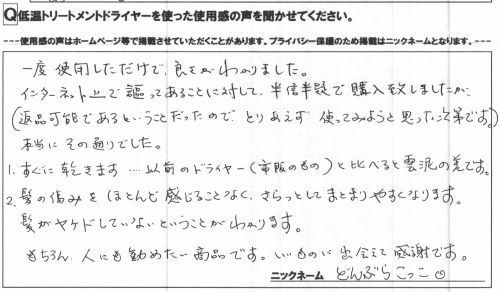 Q低温トリートメントドライヤーを使った使用感の声を聞かせてください。
---使用感の声はホームページ等で掲載させていただくことがあります。プライバシー保護のため掲載はニックネームとなります。---
一度使用しただけで、良さがわかりました。
インターネット上で謳ってあることに対して、半信半疑で購入致しましたが、
(返品可能であるということだったのでとりあえず使ってみようと思った次第です。)
本当にその通りでした。
1. すぐに乾きます ‥‥以前のドライヤー(市販のもの)と比べると雲泥の差です。
2. 髪の傷みをほとんど感じることなく、さらっとしてまとまりやすくなります。
髪がヤケドしていないということがわかります。
もちろん、人にも勧めたい商品です。いいものに出会えて感謝です。
ニックネーム どんぶらこっこ